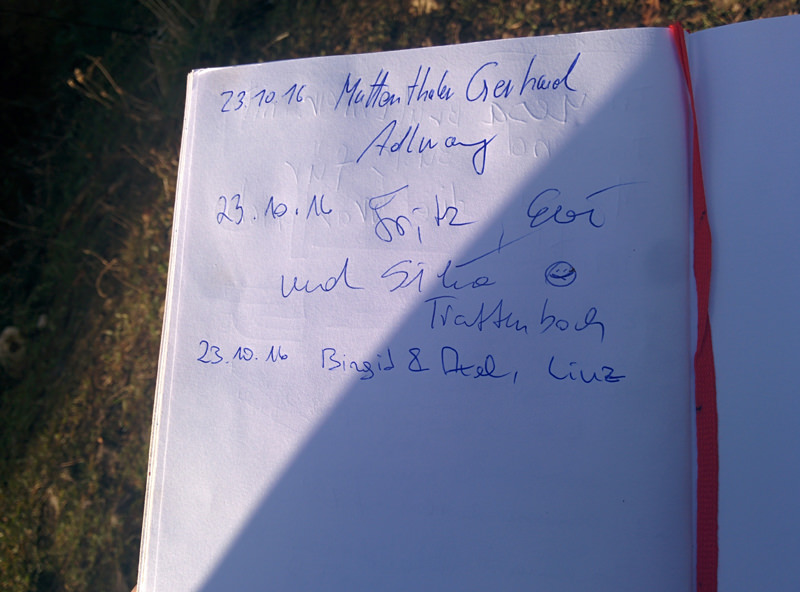 23.10.16 Mattenthaler Gerhard
Adlwang
23.10.16 Fritz, Evi
und Silvia
Trattenbach
23.10.16 Birgid & Axel, Linz